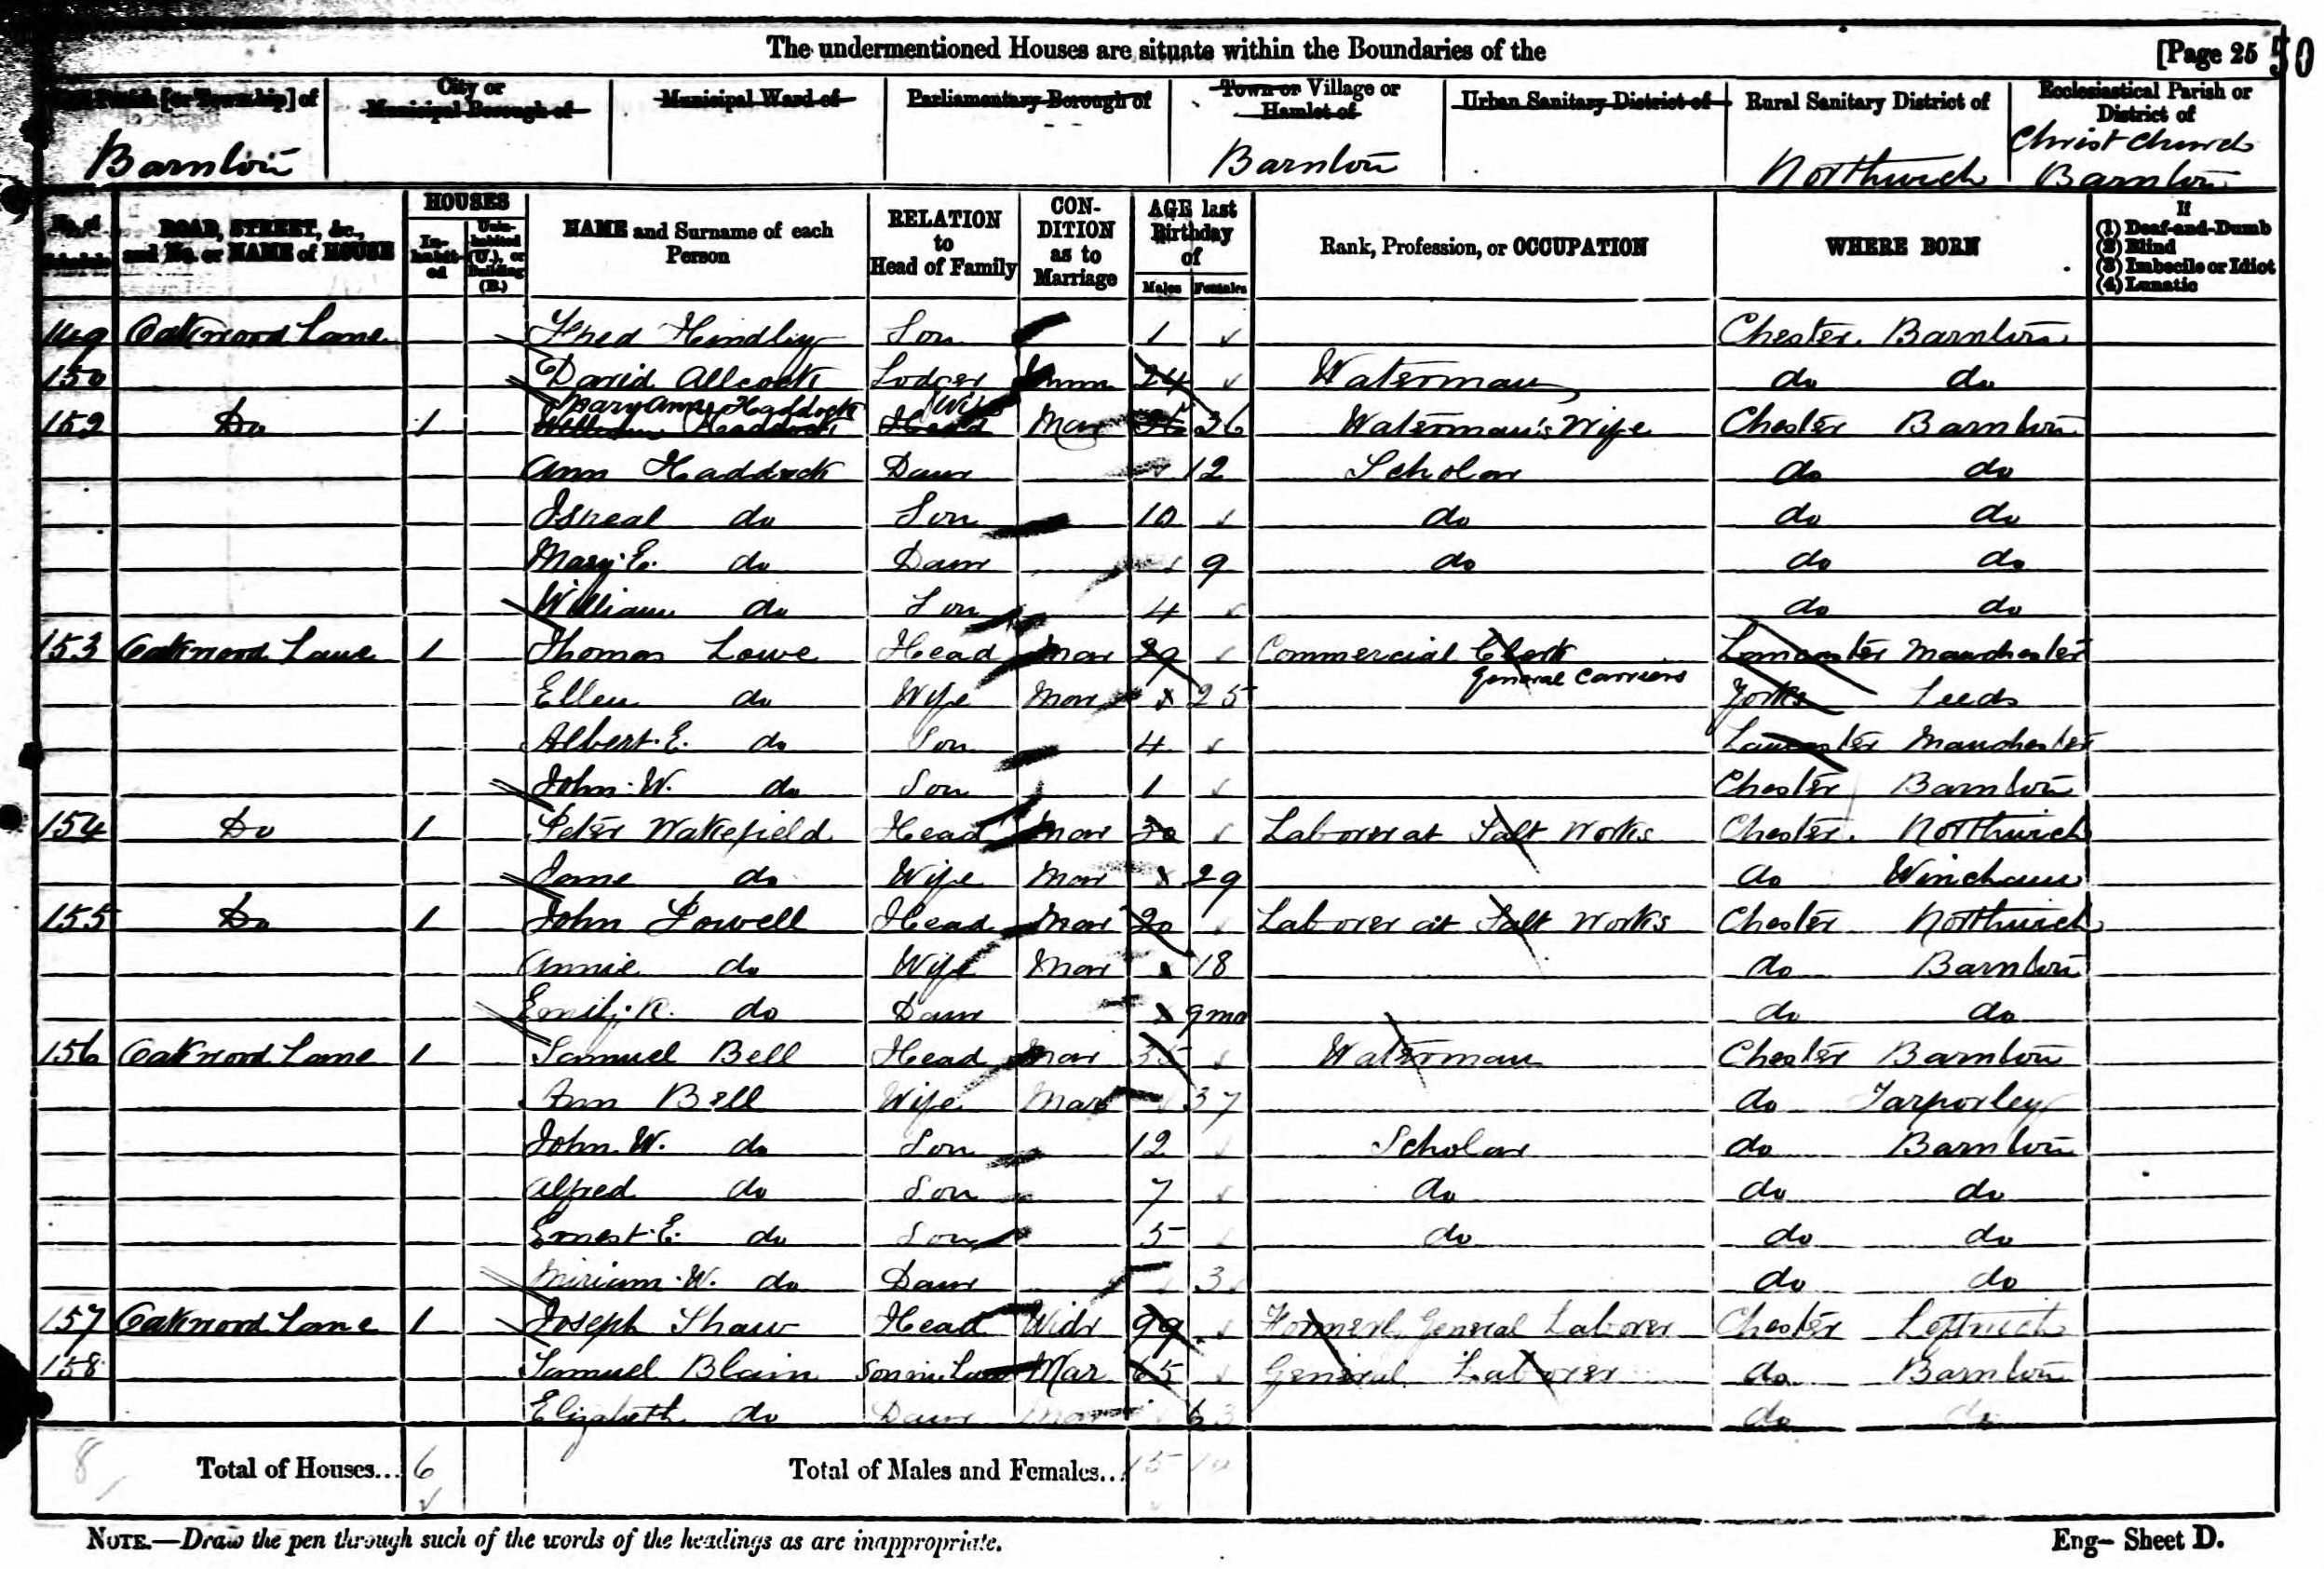 The undermentioned Houses are situate within the Boundaries of the [Page 25 50
Civil Parish [or Township] of City or Municipal Borough of Municipal Ward of Parliamentary Borough of Town or Village or Hamlet of Urban Sanitary District of Rural Sanitary District of Ecclesiastical Parish or District of
Barnton Barnton Northwich Christ Church Barnton
No. of Schedule ROAD, STREET, &c., and No. or NAME of HOUSE HOUSES In-habit-ed Unin-habited (U.), or Building (B.) NAME and Surname of each Person RELATION to Head of Family CON-DITION as to Marriage AGE last Birthday of Males Females Rank, Profession, or OCCUPATION WHERE BORN If (1) Deaf-and-Dumb (2) Blind (3) Imbecile or Idiot (4) Lunatic
149 Oakwood Lane Fred Hindley Son 1 Chester Barnton
150 David Allcock Lodger Unm 24 Waterman do do
Mary Ann Haddock Wife
152 Do 1 William Haddock Head Mar 36 Waterman's Wife Chester Barnton
Ann Haddock Daur 12 Scholar do do
Isreal do Son 10 do do do
Mary. E. do Daur 9 do do do
William do Son 4 do do
153 Oakwood Lane 1 Thomas Lowe Head Mar 29 Commercial Clerk Lancaster Manchester
General Carriers
Ellen do Wife Mar 25 Yorks Leeds
Albert. E. do Son 4 Lancaster Manchester
John. W. do Son 1 Chester Barnton
154 Do 1 Peter Wakefield Head Mar 30 Laborer at Salt Works Chester Northwich
Jane do Wife Mar 29 do Wincham
155 Do 1 John Powell Head Mar 20 Laborer at Salt Works Chester Northwich
Annie do Wife Mar 18 do Barnton
Emily. R. do Daur 9 mo do do
156 Oakwood Lane 1 Samuel Bell Head Mar 35 Waterman Chester Barnton
Ann Bell Wife Mar 37 do Tarporley
John. W. do Son 12 Scholar do Barnton
Alfred do Son 7 do do do
Ernest. E. do Son 5 do do do
Miriam. W. do Daur 3 do do
157 Oakwood Lane 1 Joseph Shaw Head Widr 99 Formerly General Laborer Chester Loftwich
158 Samuel Blain Son in Law Mar 65 General Laborer do Barnton
Elizabeth do Daur Mar 63 do do
8 Total of Houses... 6 Total of Males and Females... 15 10
NOTE.—Draw the pen through such of the words of the headings as are inappropriate. Eng— Sheet D.